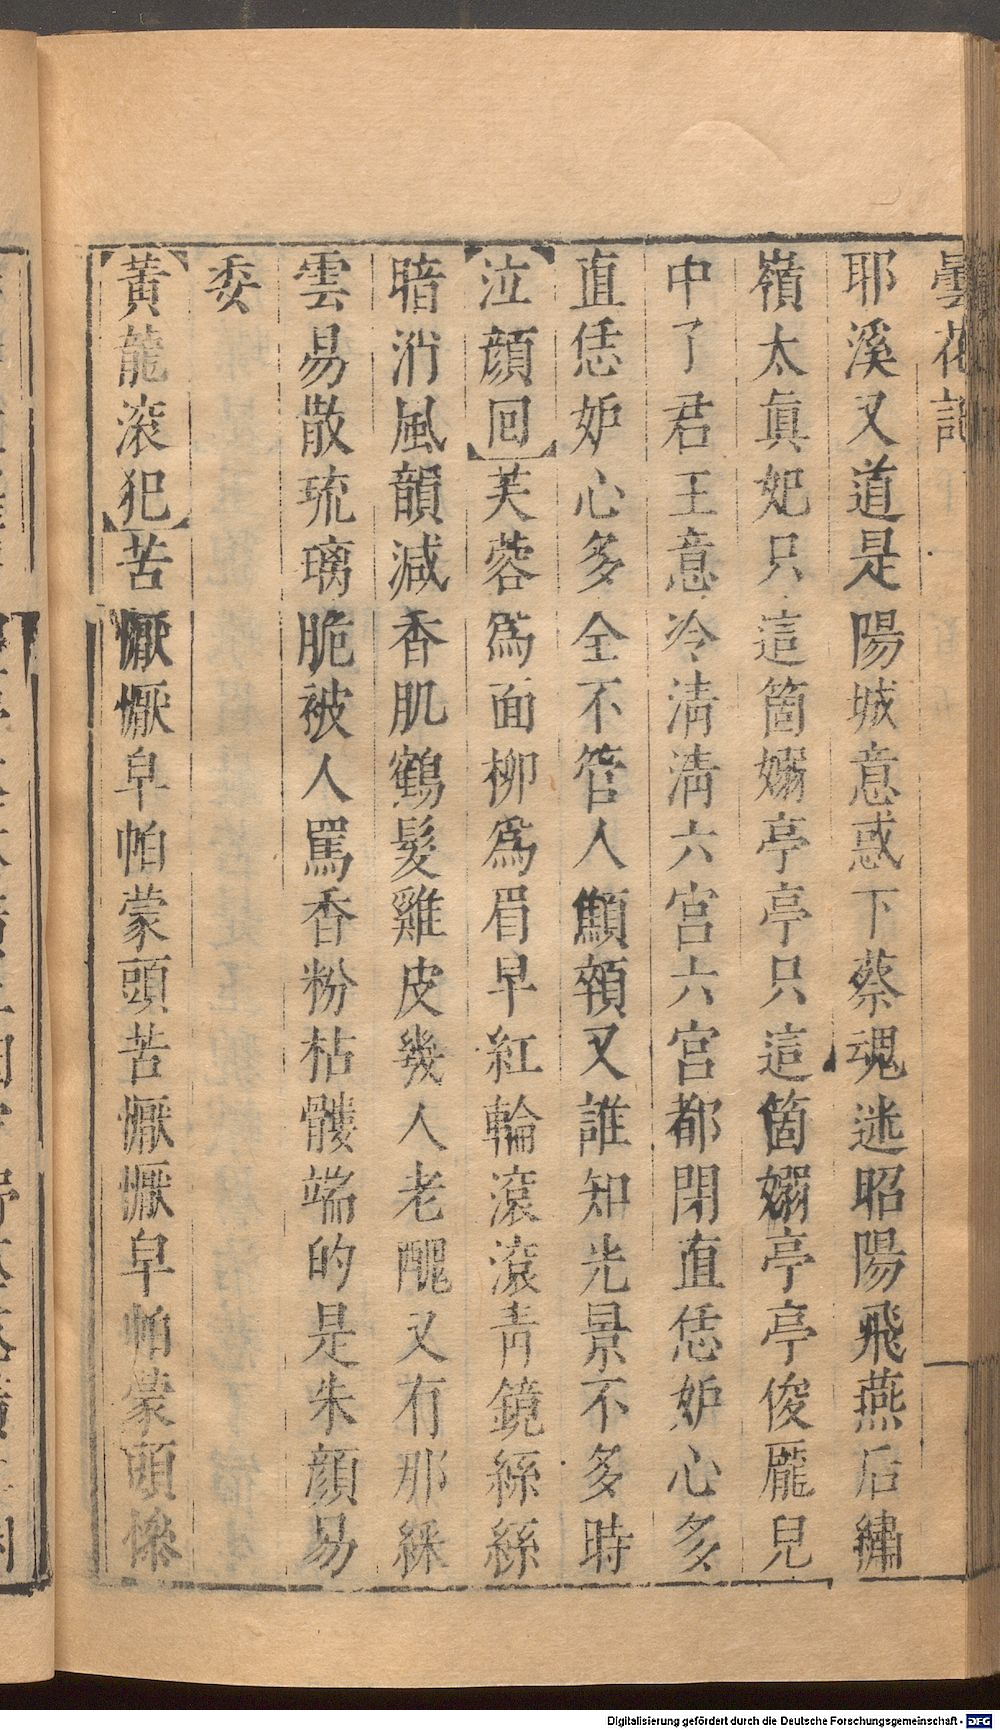 曇花記
耶溪又道是陽城意惑下蔡魂迷昭陽飛燕后繡
嶺太眞妃只這箇嫋亭亭只這箇嫋亭亭俊龐兒
中了君王意冷清清六宮六宮都閉直恁妒心多
直恁妒心多全不管人顦顇又誰知光景不多時
【泣顏回】芙蓉爲面柳爲眉早紅輪滾滾青鏡絲絲
暗消風韻減香肌鶴髮雞皮幾人老醜又有那綵
雲易散琉璃脆被人罵香粉枯髏端的是朱顏易
委
【黃龍滾犯】苦懨懨皁帕蒙頭苦懨懨皁帕蒙頭慘
Digitalisierung gefördert durch die Deutsche Forschungsgemeinschaft - DFG